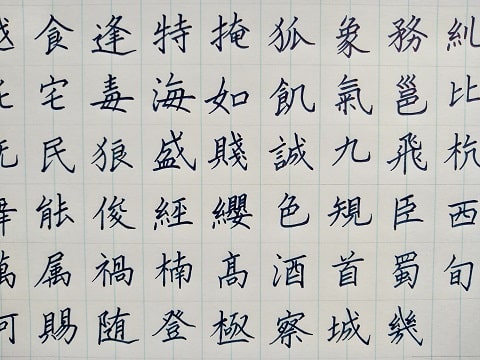 食逢特掩狐象務糺
宅毒海如飢氣邕比
民狼盛賤誠九飛杭
能俊經纓色規臣西
萬属禍楠髙酒首蜀旬
賜随登極察城幾